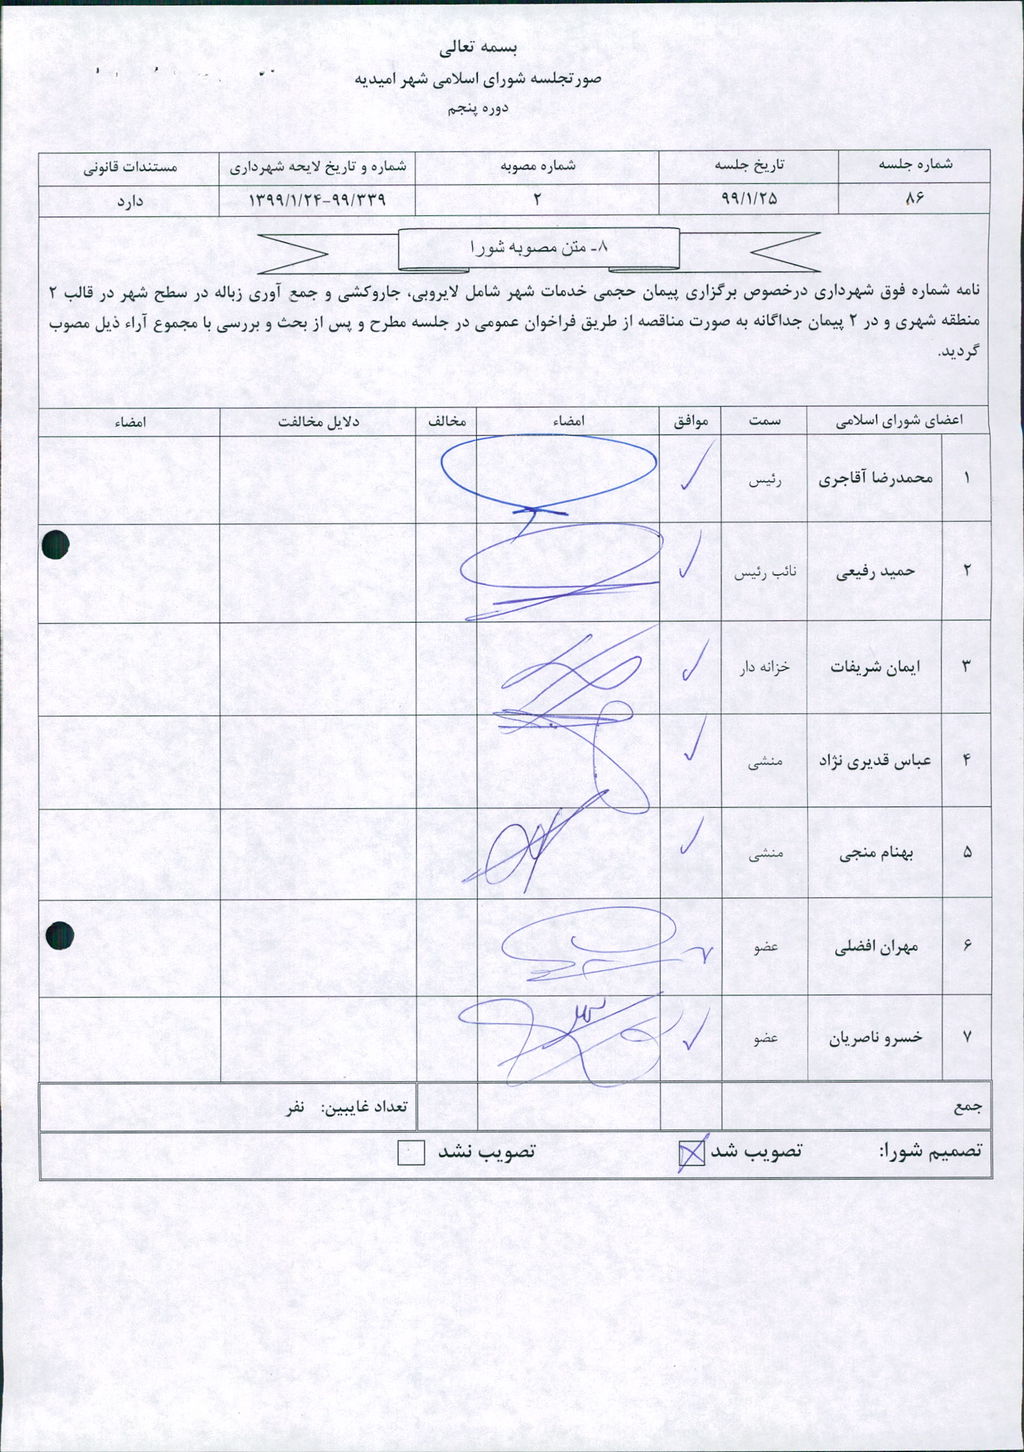 بسمه تعالی
صورتجلسه شورای اسلامی شهر امیدیه
دوره پنجم
شماره جلسه تاریخ جلسه شماره مصوبه شماره و تاریخ لایحه شهرداری مستندات قانونی
۸۶ ۹۹/۱/۲۵ ۲ ۱۳۹۹/۱/۲۴-۹۹/۳۳۹ دارد
۸- متن مصوبه شورا
نامه شماره فوق شهرداری درخصوص برگزاری پیمان حجمی خدمات شهر شامل لایروبی، جاروکشی و جمع آوری زباله در سطح شهر در قالب ۲
منطقه شهری و در ۲ پیمان جداگانه به صورت مناقصه از طریق فراخوان عمومی در جلسه مطرح و پس از بحث و بررسی با مجموع آراء ذیل مصوب
گردید.
اعضای شورای اسلامی سمت موافق امضاء مخالف دلایل مخالفت امضاء
۱ محمدرضا آقاجری رئیس
۲ حمید رفیعی نائب رئیس
۳ ایمان شریفات خزانه دار
۴ عباس قدیری نژاد منشی
۵ بهنام منجی منشی
۶ مهران افضلی عضو
۷ خسرو ناصریان عضو
جمع تعداد غایبین: نفر
تصمیم شورا: تصویب شد تصویب نشد